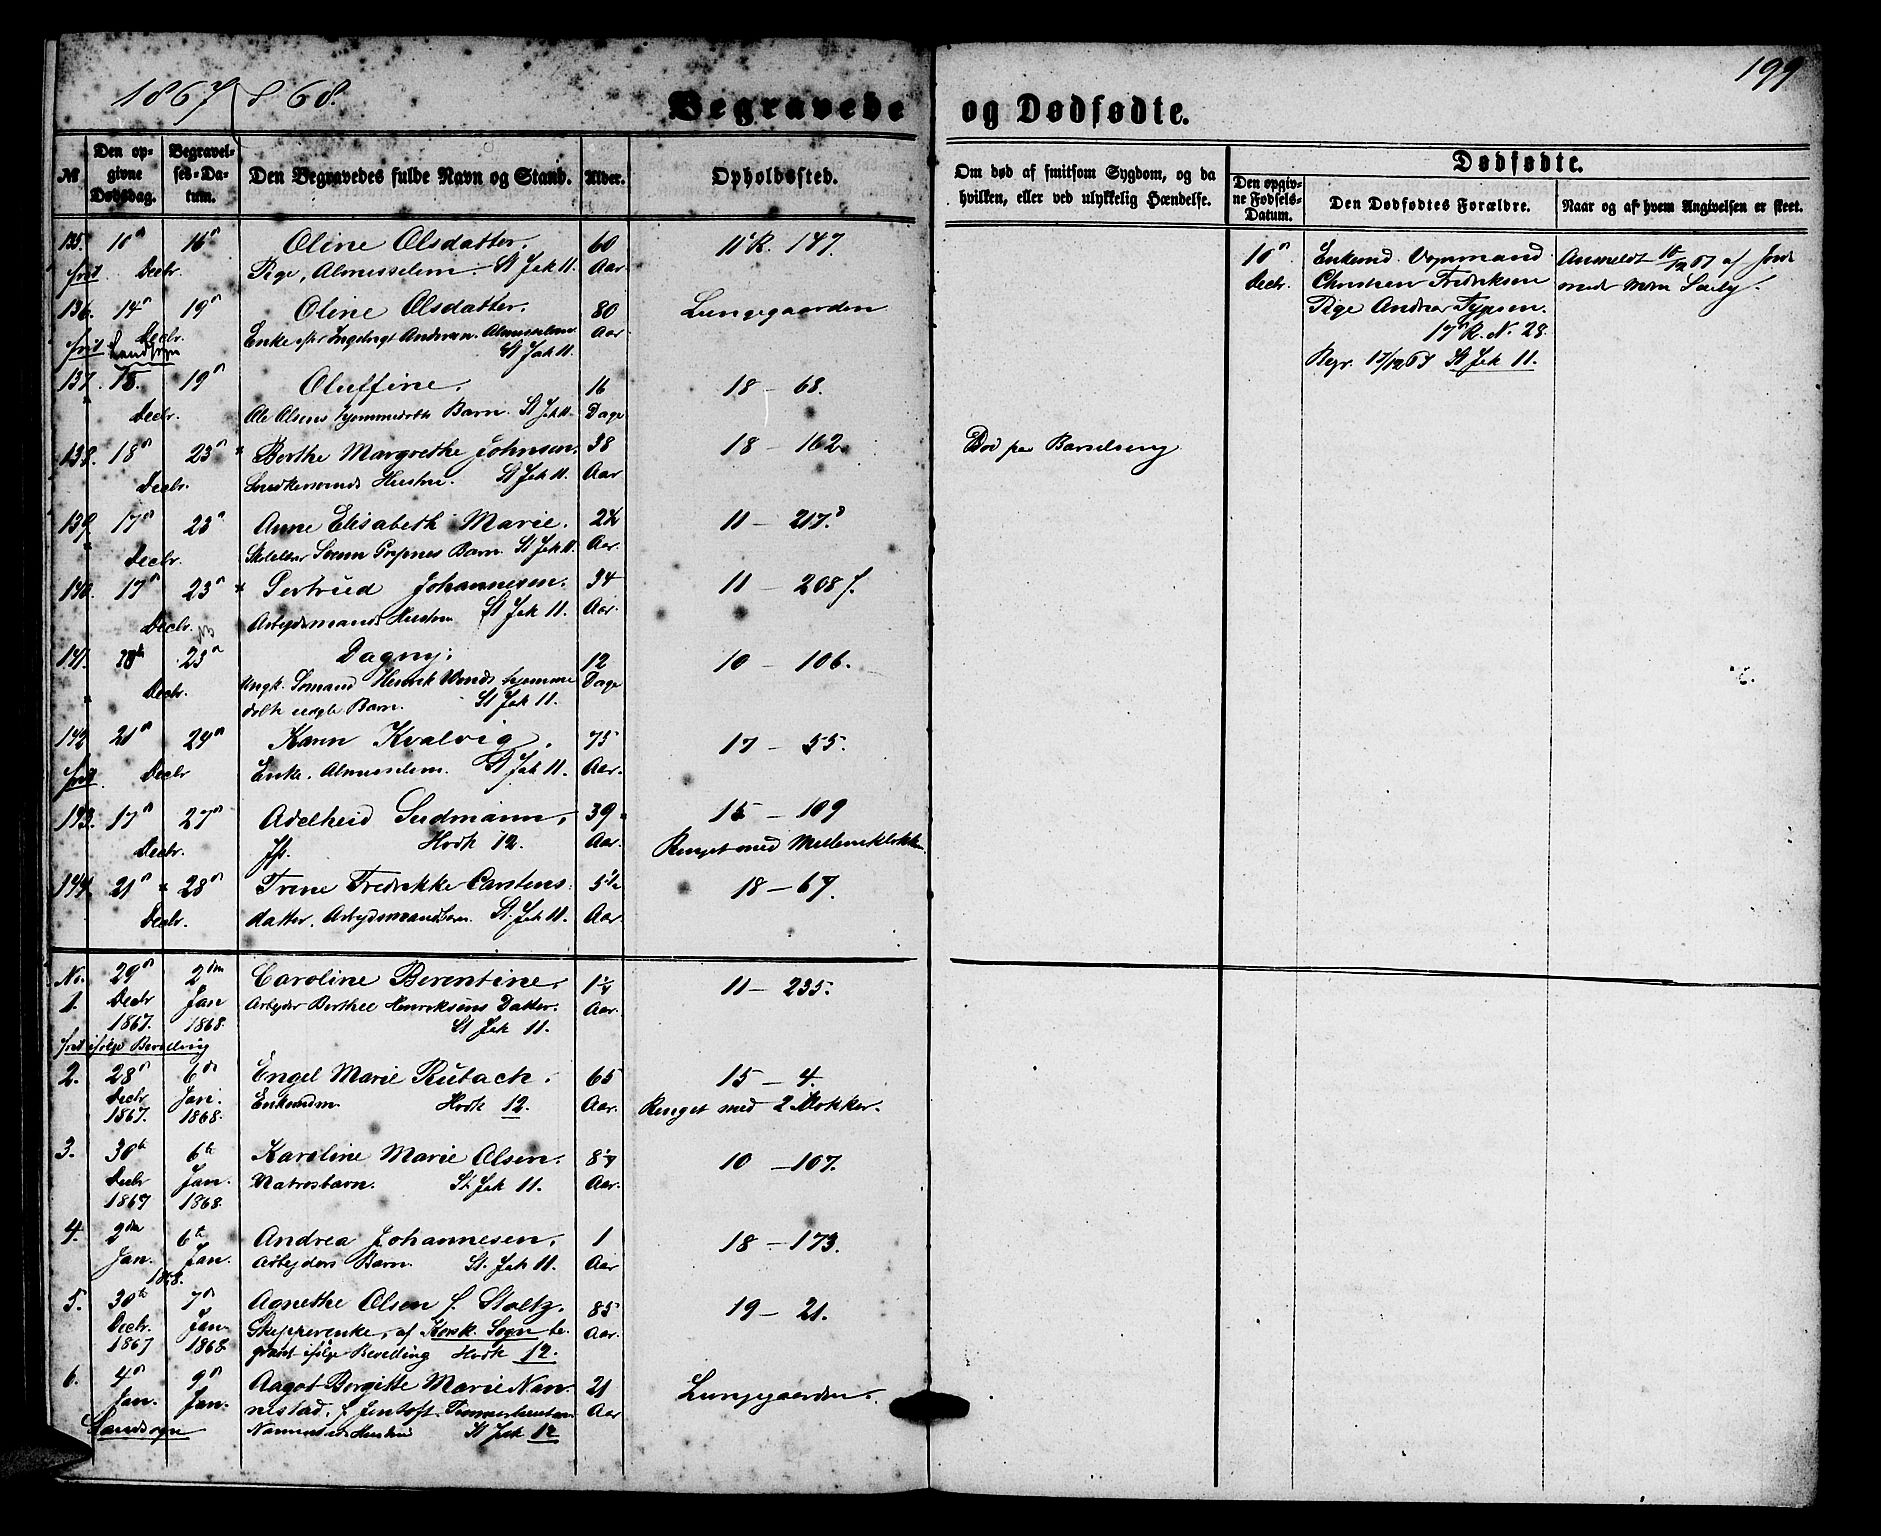 1867 868.
199
Begravede og Dødfødte.
№
Den opgivne Dødsdag.
Begravelses-Datum.
Den Begravedes fulde Navn og Stand.
Alder.
Opholdssted.
Om død af smitsom Sygdom, og da hvilken, eller ved ulykkelig Hændelse.
Dødfødte.
Den opgivne Fødsels-Datum.
Den Dødfødtes Forældre.
Naar og af hvem Angivelsen er skeet.
135. 10 16 Oline Olsdatter. 60 11 R. 147.
frit Decbr. Pige, Almisselem St Jak 11. Aar
136. 14 19 Oline Olsdatter. 80 Lungegaarden
frit Decbr. Enke Almisselem Aar
Landsogn St Jak 11.
137. 18. 19 Oluffine. 16 18 – 68.
Decbr. Ole Olsens Barn. St Jak 11. Dage
138. 18 23 Berthe Margrethe Johnsen. 38 18 – 162 Død paa Barselseng
Decbr. Hustru. St Jak 11. Aar
139. 17 23 Anne Elisabeth Marie. 11 – 217.
Decbr. Barn. St Jak 11. Aar.
140. 17 23 Gertrud Johannesen. 34 11 – 208 f.
Decbr. Arbeidsmands Hustru St Jak 11. Aar.
141. 23 Dagny. 12 10 – 106.
Decbr. Ungk. Sømand Henrik hjemme Dage
døbt uægte Barn. St Jak 11.
142 21 29 Karen Kvalvig. 75 17 – 55.
frit Decbr Enke. Almisselem. St Jak 11. Aar.
143. 17 27 Adelheid Sudmann. 39 15 – 109
Decbr. Hodk 12. Aar. Ringet med Mellemklokken
144. 21 28 Trine Fredrikke Carstens- 5½ 18 – 67.
Decbr. datter. Arbejdsmandsbarn. St. Jak 11. Aar.
10 Decbr. Enkemd. Vognmand
Christian Fredriksen
Pige Andrea
17 R. N. 28
Begr. 17/12 67 St Jak 11.
Anmeldt 16/12 67 af Jord-
No. 29 2den Caroline Berentine. 11 – 235.
1. Decbr Jan Arbejder Berthel Henriksens Datter. Aar.
1867. 1868. St Jak 11.
frit ifølge Bevilling
2. 28 6 Engel Marie Rubach. 65 15 – 4.
Decbr Jan. Hodk 12. Aar. Ringet med 2 Klokker.
1867. 1868.
3. 30 6te Karoline Marie Olsen. 10 – 107.
Decbr Jan. Matrosbarn. St. Jak 11. Aar.
1867 1868.
4. 2den 6te Andrea Johannesen. 1 18 – 173.
Jan. Jan. Arbejders Barn. St. Jak 11. Aar
1868.
5. 30 7 Agnethe Olsen f. Stoltz. 85 19 – 21.
Decbr. Jan. Skipperenke, af Korsk. Sogn be- Aar.
1867 1868 gravet ifølge Bevilling Hodk 12.
6. 4 9 Aagot Borgitte Marie Nan- 21 Lungegaarden.
Jan. Jan. nestad, f. Jentoft. Aar
Landsogn Nannestads Hustru St Jak 12